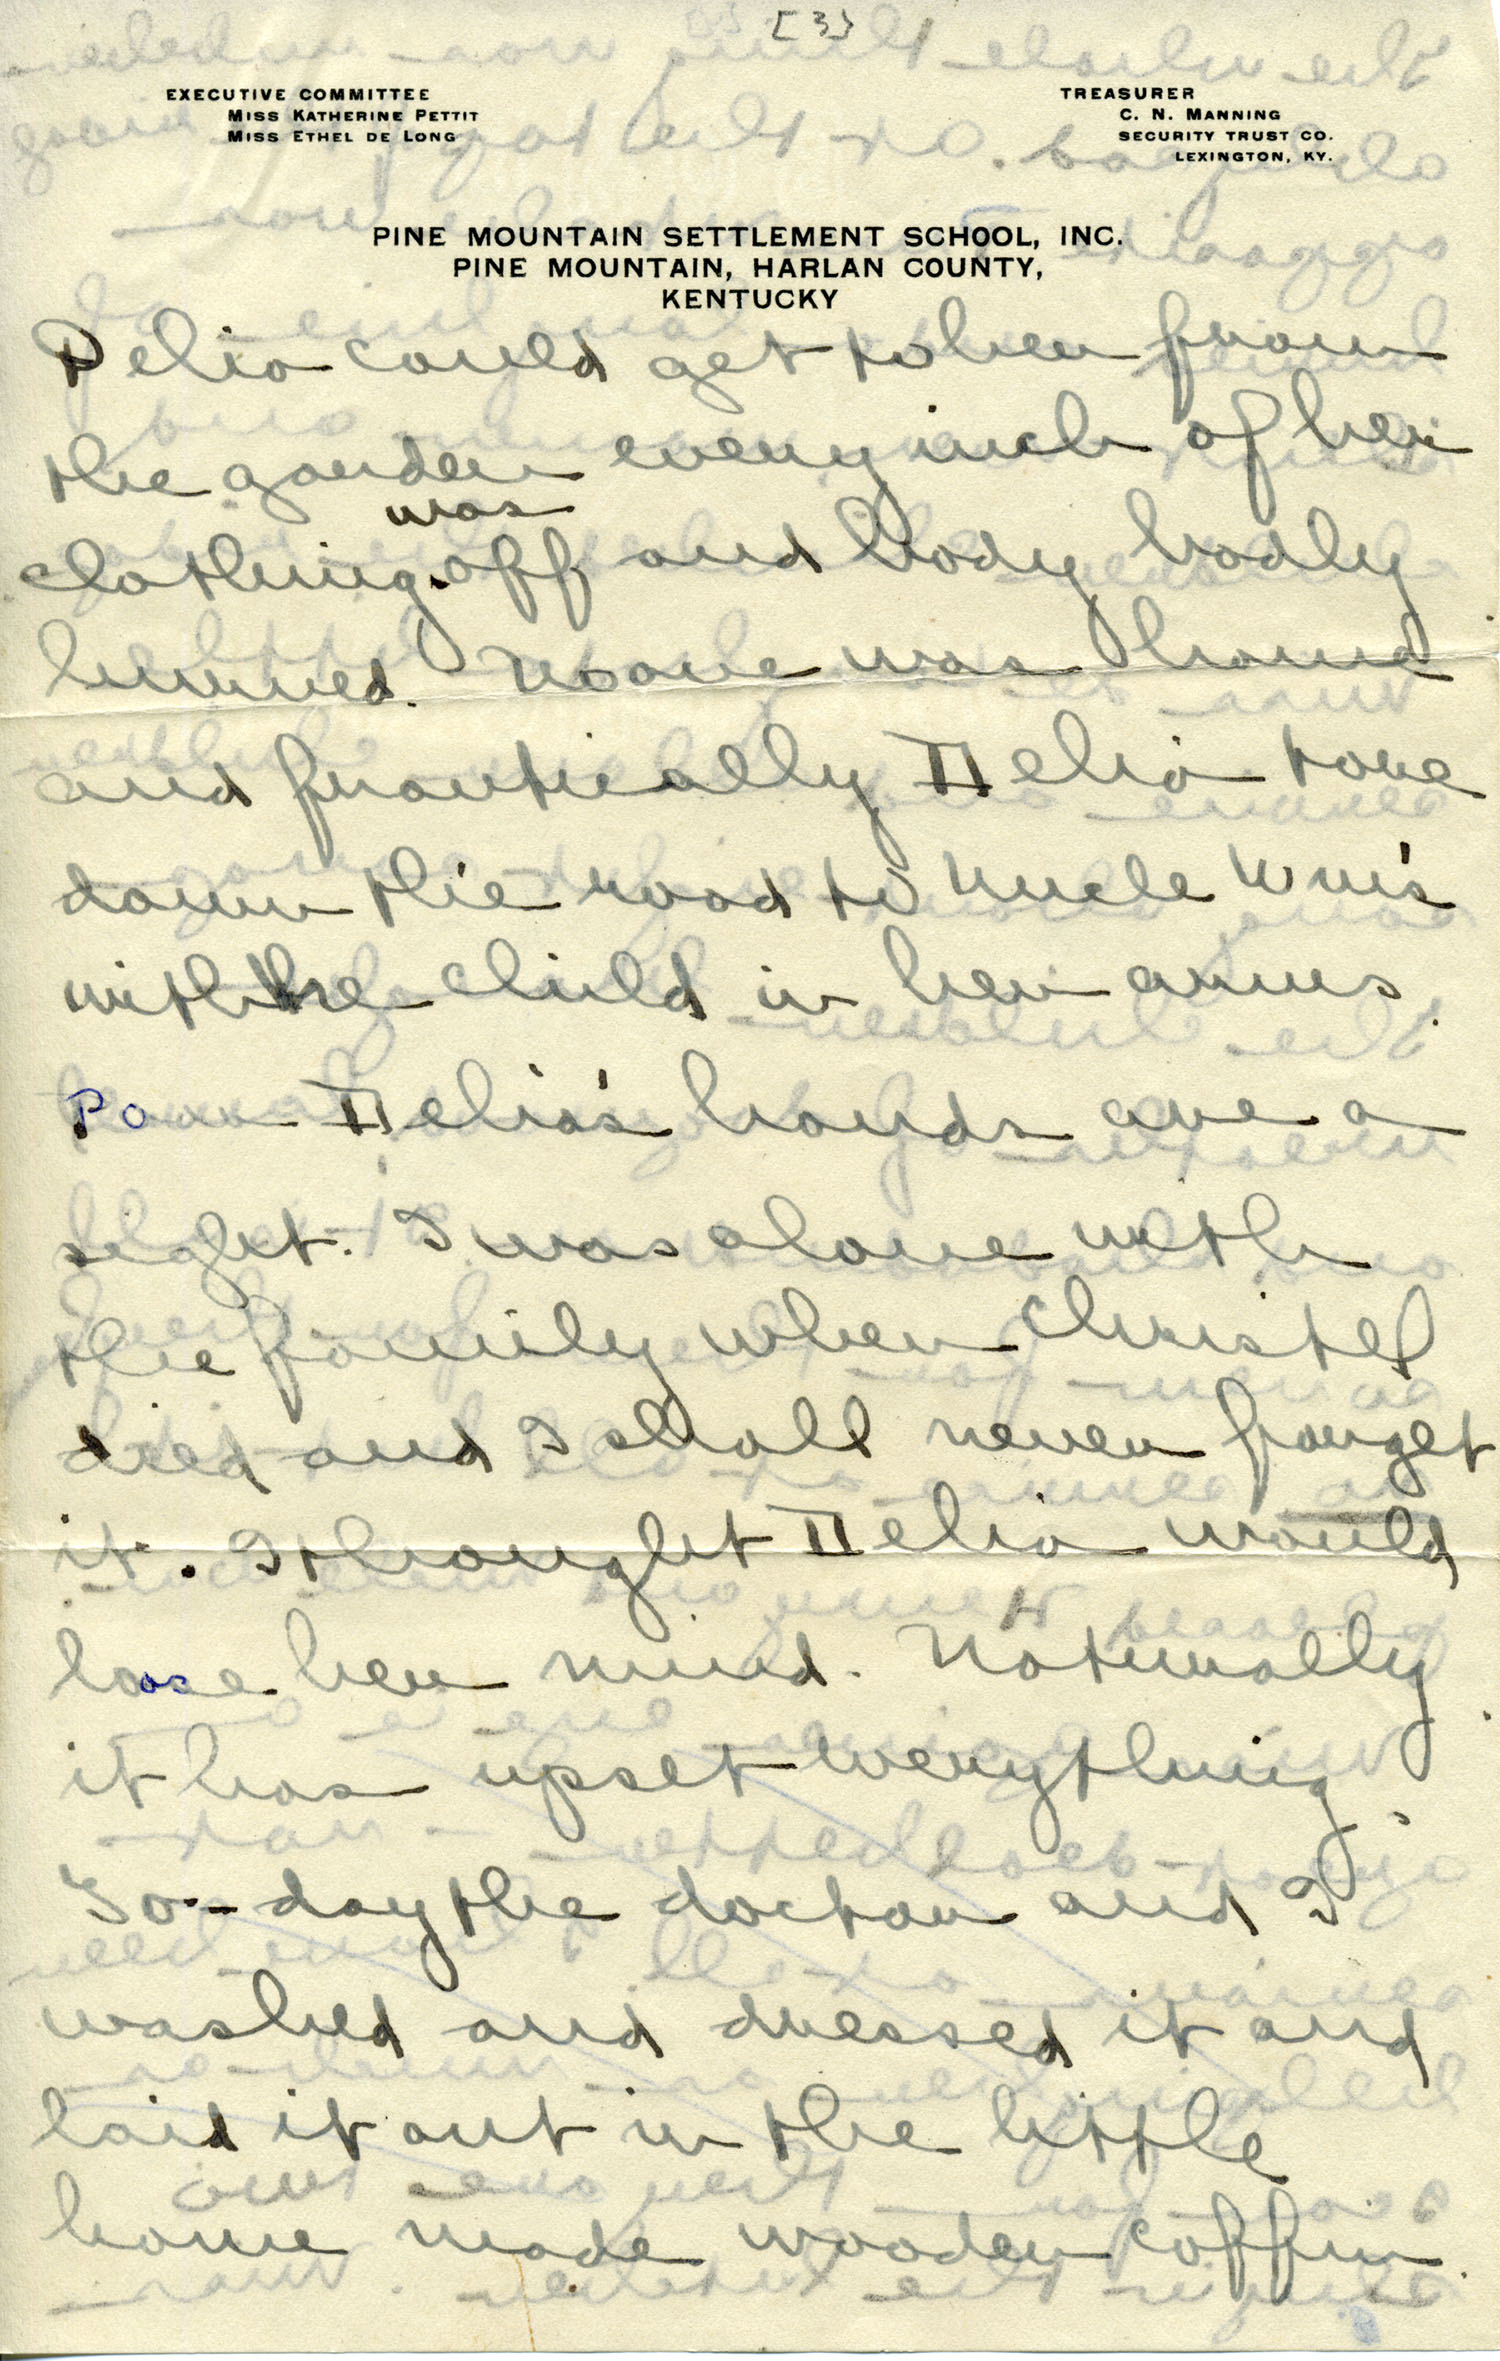 [3]
EXECUTIVE COMMITTEE
MISS KATHERINE PETTIT
MISS ETHEL DE LONG
TREASURER
C. N. MANNING
SECURITY TRUST CO.
LEXINGTON, KY.
PINE MOUNTAIN SETTLEMENT SCHOOL, INC.
PINE MOUNTAIN, HARLAN COUNTY,
KENTUCKY
Delia could get to her from
the garden every inch of her
was
clothing off and body badly
burned. No one was home
and frantically Delia tore
down the road to Uncle Wm's
with the child in her arms.
Poor Delia's hands are a
sight. I was alone with
the family when Christel
died and I shall never forget
it. I thought Delia would
loose her mind. Naturally
it has upset everything.
To-day the doctor and I
washed and dressed it and
laid it out in the little
home made wooden coffin.